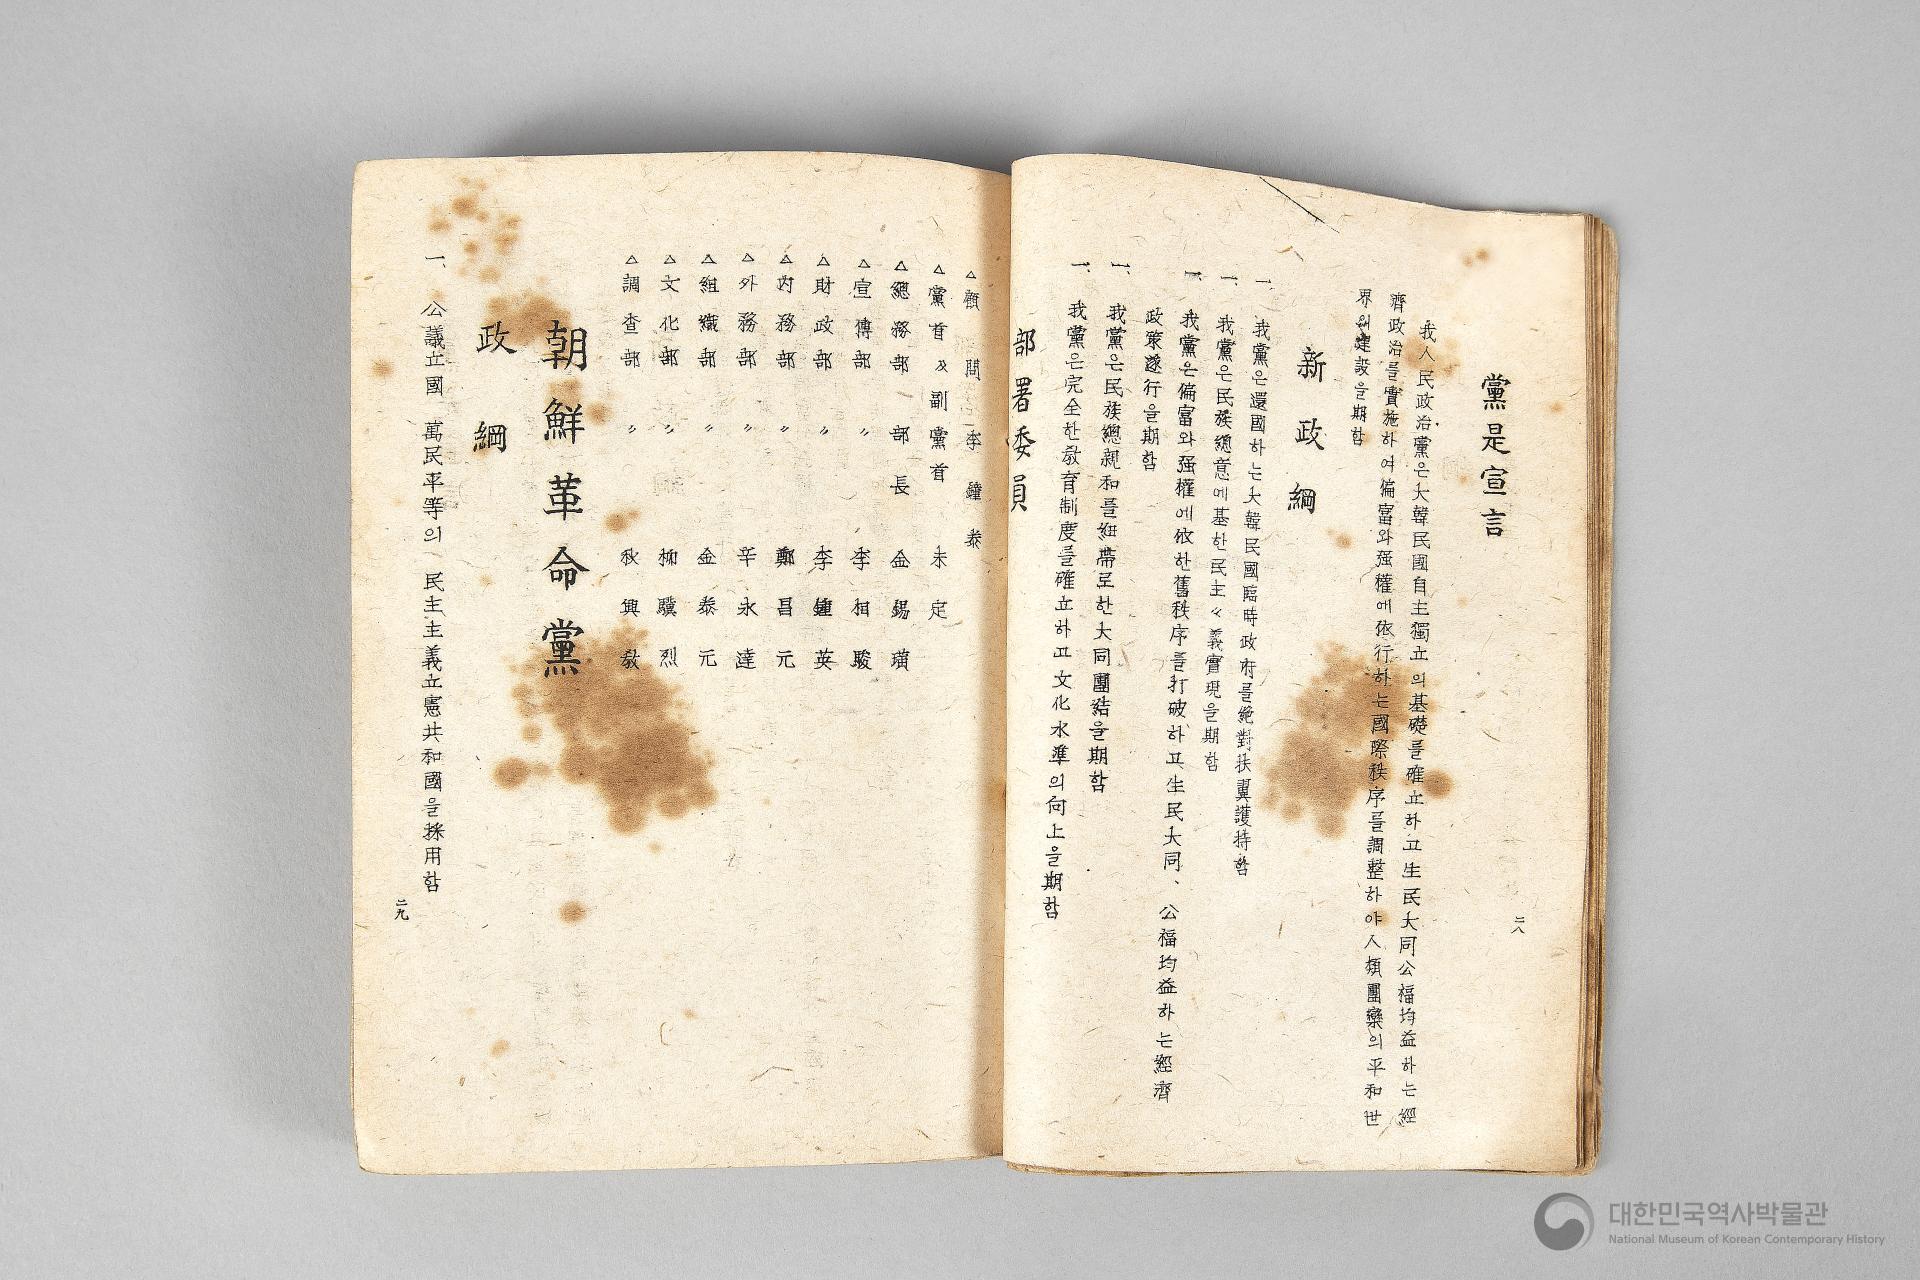 黨是宣言
我人民政治黨은大韓民國自主獨立의基礎를確立하고生民大同公福均益하는經
濟政治를實施하여偏富와强權에依行하는國際秩序를調整하야人類團欒의平和世
界의建設을期함
新政綱
一、我黨은還國하는大韓民國臨時政府를絶對扶翼護持함
一、我黨은民族總意에基한民主〃義實現을期함
一、我黨은偏富와强權에依한舊秩序를打破하고生民大同、公福均益하는經濟
政策遂行을期함
一、我黨은民族總親和를紐帶로한大同團結을期함
一、我黨은完全한敎育制度를確立하고文化水準의向上을期함
部署委員
二八
△顧問 李鐘泰
△黨首及副黨首 未定
△總務部 部長 金錫璜
△宣傳部 〃 李相駿
△財政部 〃 李鍾英
△內務部 〃 鄭昌元
△外務部 〃 辛永達
△組織部 〃 金泰元
△文化部 〃 柳驥烈
△調査部 〃 秋興敎
朝鮮革命黨
政綱
一、公議立國 萬民平等의 民主主義立憲共和國을採用함
二九
대한민국역사박물관
National Museum of Korean Contemporary History